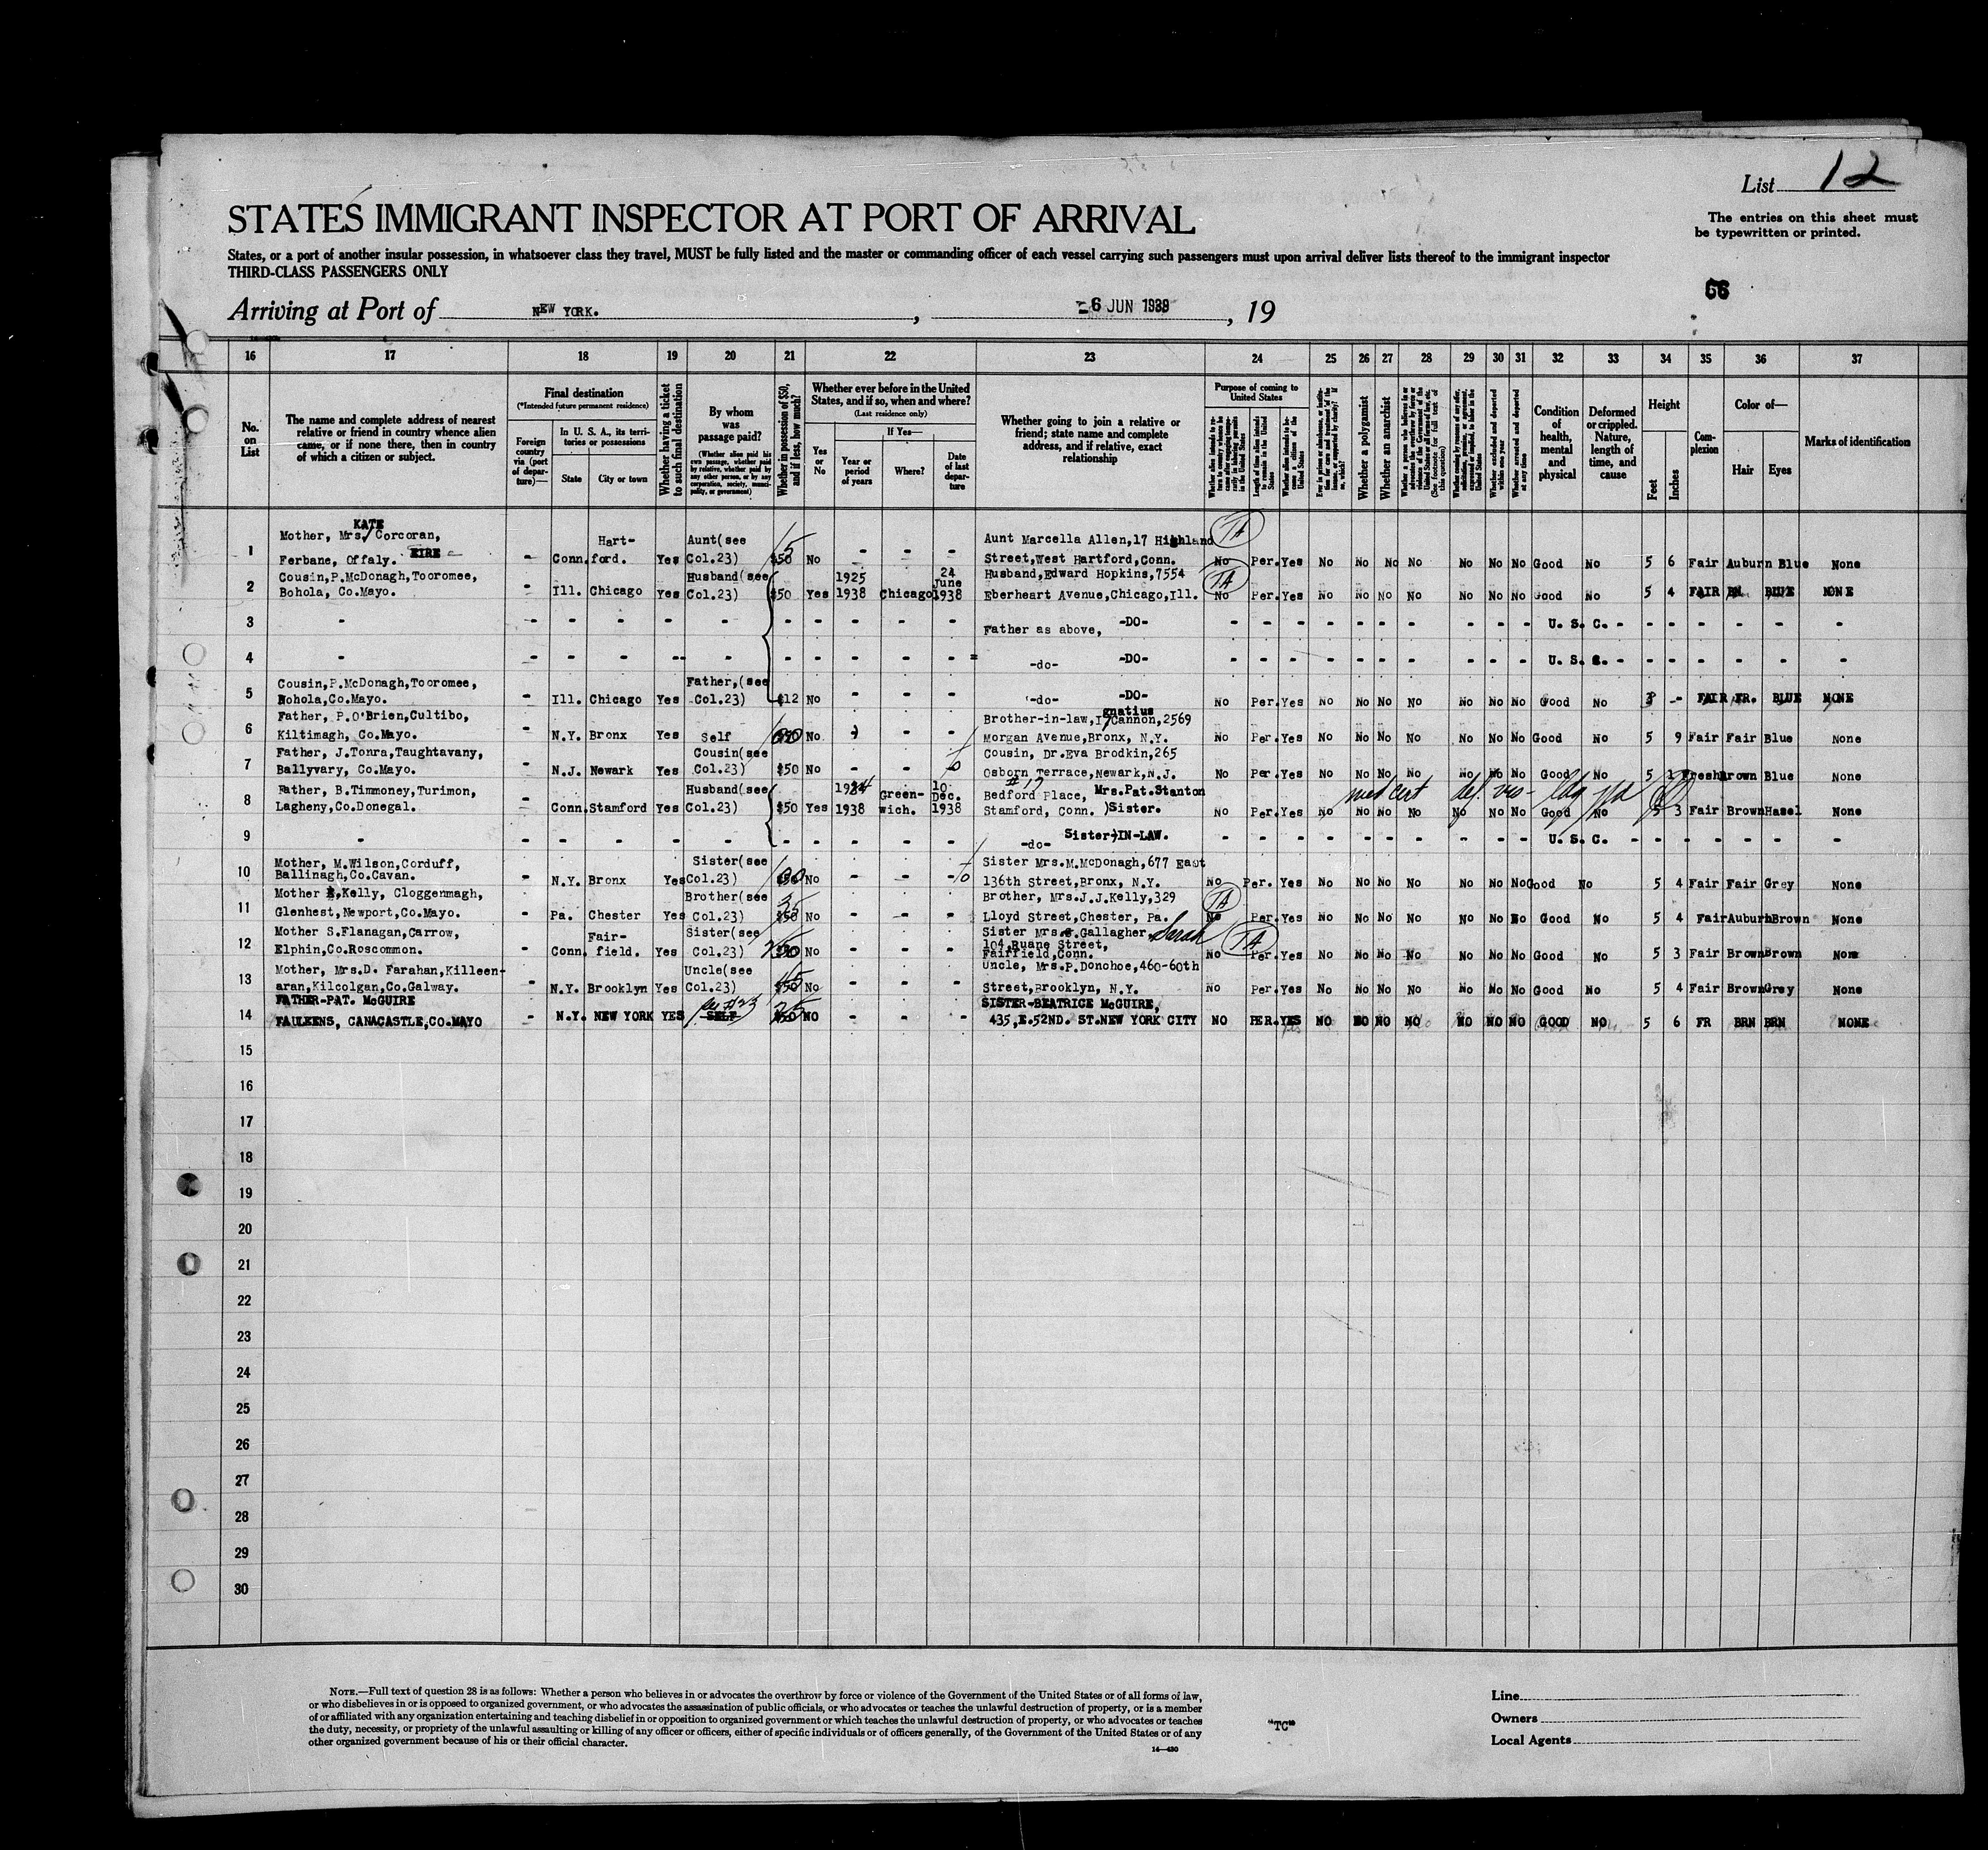 List 12
STATES IMMIGRANT INSPECTOR AT PORT OF ARRIVAL
The entries on this sheet must
be typewritten or printed.
States, or a port of another insular possession, in whatsoever class they travel, MUST be fully listed and the master or commanding officer of each vessel carrying such passengers must upon arrival deliver lists thereof to the immigrant inspector
THIRD-CLASS PASSENGERS ONLY
66
Arriving at Port of NEW YORK. , 6 JUN 1939 , 19
16 17 18 19 20 21 22 23 24 25 26 27 28 29 30 31 32 33 34 35 36 37
No. on List
The name and complete address of nearest relative or friend in country whence alien came, or if none there, then in country of which a citizen or subject.
Final destination
(*Intended future permanent residence)
Foreign country via (port of departure)—
In U. S. A., its territories or possessions
State
City or town
Whether having a ticket to such final destination
By whom was passage paid?
(Whether alien paid his own passage, whether paid by relative, whether paid by any other person, or by any corporation, society, municipality, or government)
Whether in possession of $50, and if less, how much?
Whether ever before in the United States, and if so, when and where?
(Last residence only)
Yes or No
If Yes—
Year or period of years
Where?
Date of last departure
Whether going to join a relative or friend; state name and complete address, and if relative, exact relationship
Purpose of coming to United States
Whether alien intends to return to country whence he came after engaging temporarily in laboring pursuits in the United States
Length of time alien intends to remain in the United States
Whether alien intends to become a citizen of the United States
Whether a polygamist
Whether an anarchist
(See footnote for full text of this question)
Whether excluded and deported within one year
Whether arrested and deported at any time
Condition of health, mental and physical
Deformed or crippled. Nature, length of time, and cause
Height
Feet
Inches
Complexion
Color of—
Hair
Eyes
Marks of identification
KATE
1 Mother, Mrs. Corcoran, Hart- Aunt(see 5 Aunt Marcella Allen,17 Highland TA
Ferbane, Offaly. EIRE - Conn. ford. Yes Col.23) $50 No - - - Street,West Hartford,Conn. No Per. Yes No No No No No No No Good No 5 6 Fair Auburn Blue None
2 Cousin,P.McDonagh,Tooromee, Husband(see 1925 24 June Husband,Edward Hopkins,7554 TA
Bohola, Co.Mayo. - Ill. Chicago Yes Col.23) $50 Yes 1938 Chicago 1938 Eberheart Avenue,Chicago,Ill. No Per. Yes No No No No No No No Good No 5 4 FAIR BN. BLUE NONE
3 - - - - - - - - - - - Father as above, -DO- - - - - - - - - - - U. S. C. - - - - - - -
4 - - - - -- - - - - - - -do- -DO- - - - - - - - - - - U. S. C. - - - - - - -
5 Cousin,P.McDonagh,Tooromee, Father,(see
Bohola,Co.Mayo. - Ill. Chicago Yes Col.23) $12 No - - - -do- -DO- No Per. Yes No No No No No No No Good No 3 - FAIR FR. BLUE NONE
6 Father, P.O'Brien,Cultibo, Brother-in-law,Ignatius Cannon,2569
Kiltimagh, Co.Mayo. - N.Y. Bronx Yes Self No - - Morgan Avenue,Bronx, N.Y. No Per. Yes No No No No No No No Good No 5 9 Fair Fair Blue None
7 Father, J.Tonra,Taughtavany, Cousin(see Cousin, Dr.Eva Brodkin,265
Ballyvary, Co.Mayo. - N.J. Newark Yes Col.23) $50 No - - Osborn Terrace,Newark,N.J. No Per. Yes No No No No No No No Good No 5 Fresh Brown Blue None
8 Father, B.Timmoney,Turimon, Husband(see 1934 Green- 10 Dec. # 17 Bedford Place, Mrs.Pat.Stanton med cert def. vis-
Lagheny,Co.Donegal. - Conn. Stamford Yes Col.23) $50 Yes 1938 wich. 1938 Stamford, Conn. )Sister. No Per. Yes No No No No No No No Good No 5 3 Fair Brown Hazel None
9 - - - - - - - - - - - -do- Sister)IN-LAW. - - - - - - - - - - U. S. C. - - - - - - -
10 Mother, M.Wilson,Corduff, Sister(see Sister Mrs.M.McDonagh,677 East
Ballinagh,Co.Cavan. - N.Y. Bronx Yes Col.23) No - - 136th Street,Bronx, N.Y. No Per. Yes No No No No No No No Good No 5 4 Fair Fair Grey None
11 Mother ,Kelly, Cloggenmagh, Brother(see 35 Brother, Mrs.J.J.Kelly,329 TA
Glenhest,Newport,Co.Mayo. - Pa. Chester Yes Col.23) $50 No - - - Lloyd Street,Chester, Pa. No Per. Yes No No No No No No No Good No 5 4 Fair Auburn Brown None
12 Mother S.Flanagan,Carrow, Fair- Sister(see Sister Mrs. Gallagher Sarah TA
104,Ruane Street,
Elphin,Co.Roscommon. - Conn. field. Yes Col.23) No - - - Fairfield,Conn. No Per. Yes No No No No No No No Good No 5 3 Fair Brown Brown None
13 Mother, Mrs.D. Farahan,Killeen- Uncle(see 45 Uncle, Mrs.P.Donohoe,460-60th
aran,Kilcolgan,Co.Galway. - N.Y. Brooklyn Yes Col.23) $50 No - - - Street,Brooklyn, N.Y. No Per. Yes No No No No No No No Good No 5 4 Fair Brown Grey None
14 FATHER-PAT. McGUIRE 25 SISTER-BEATRICE McGUIRE,
FAULEENS, CANACASTLE,CO.MAYO - N.Y. NEW YORK YES SELF NO - - - 435,E.52ND. ST.NEW YORK CITY NO PER. YES NO NO NO NO NO NO NO GOOD NO 5 6 FR BRN BRN NONE
15
16
17
18
19
20
21
22
23
24
25
26
27
28
29
30
NOTE.—Full text of question 28 is as follows: Whether a person who believes in or advocates the overthrow by force or violence of the Government of the United States or of all forms of law,
or who disbelieves in or is opposed to organized government, or who advocates the assassination of public officials, or who advocates or teaches the unlawful destruction of property, or is a member
of or affiliated with any organization entertaining and teaching disbelief in or opposition to organized government or which teaches the unlawful destruction of property, or who advocates or teaches
the duty, necessity, or propriety of the unlawful assaulting or killing of any officer or officers, either of specific individuals or of officers generally, of the Government of the United States or of any
other organized government because of his or their official character.
14—430
"TC"
Line
Owners
Local Agents